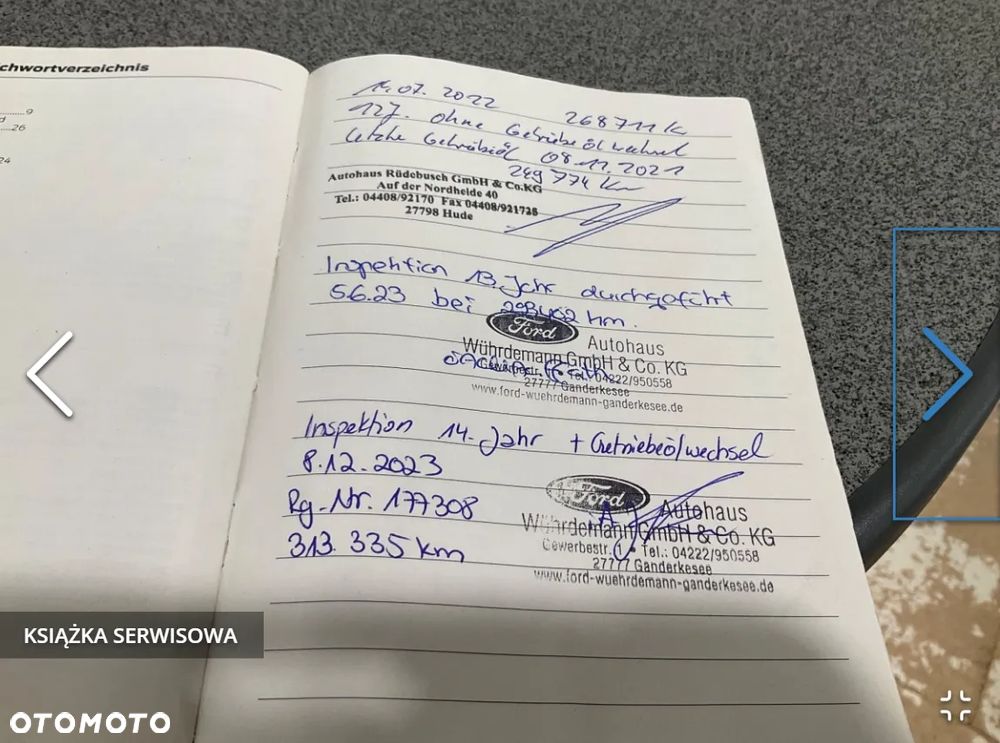 chwortverzeichnis
9
26
24
14.07.2022 268711 k
12J. ohne Getriebeölwechsel
letzte Getriebeöl 08.11.2021
249 774 km
Autohaus Rüdebusch GmbH & Co.KG
Auf der Nordheide 40
Tel.: 04408/92170 Fax 04408/921725
27798 Hude
Inspektion 13. Jahr durchgeführt
5.6.23 bei 298402 km.
Ford
Autohaus
Wührdemann GmbH & Co. KG
Gewerbestr. Tel.: 04222/950558
27777 Ganderkesee
www.ford-wuehrdemann-ganderkesee.de
Inspektion 14. Jahr + Getriebeölwechsel
8.12.2023
Rg.-Nr. 177308
313.335 km
Ford
Autohaus
Wührdemann GmbH & Co. KG
Gewerbestr. Tel.: 04222/950558
27777 Ganderkesee
www.ford-wuehrdemann-ganderkesee.de
KSIĄŻKA SERWISOWA
OTOMOTO